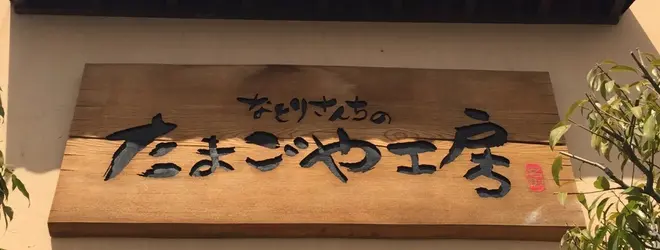 なとりさんちの
たまごや工房